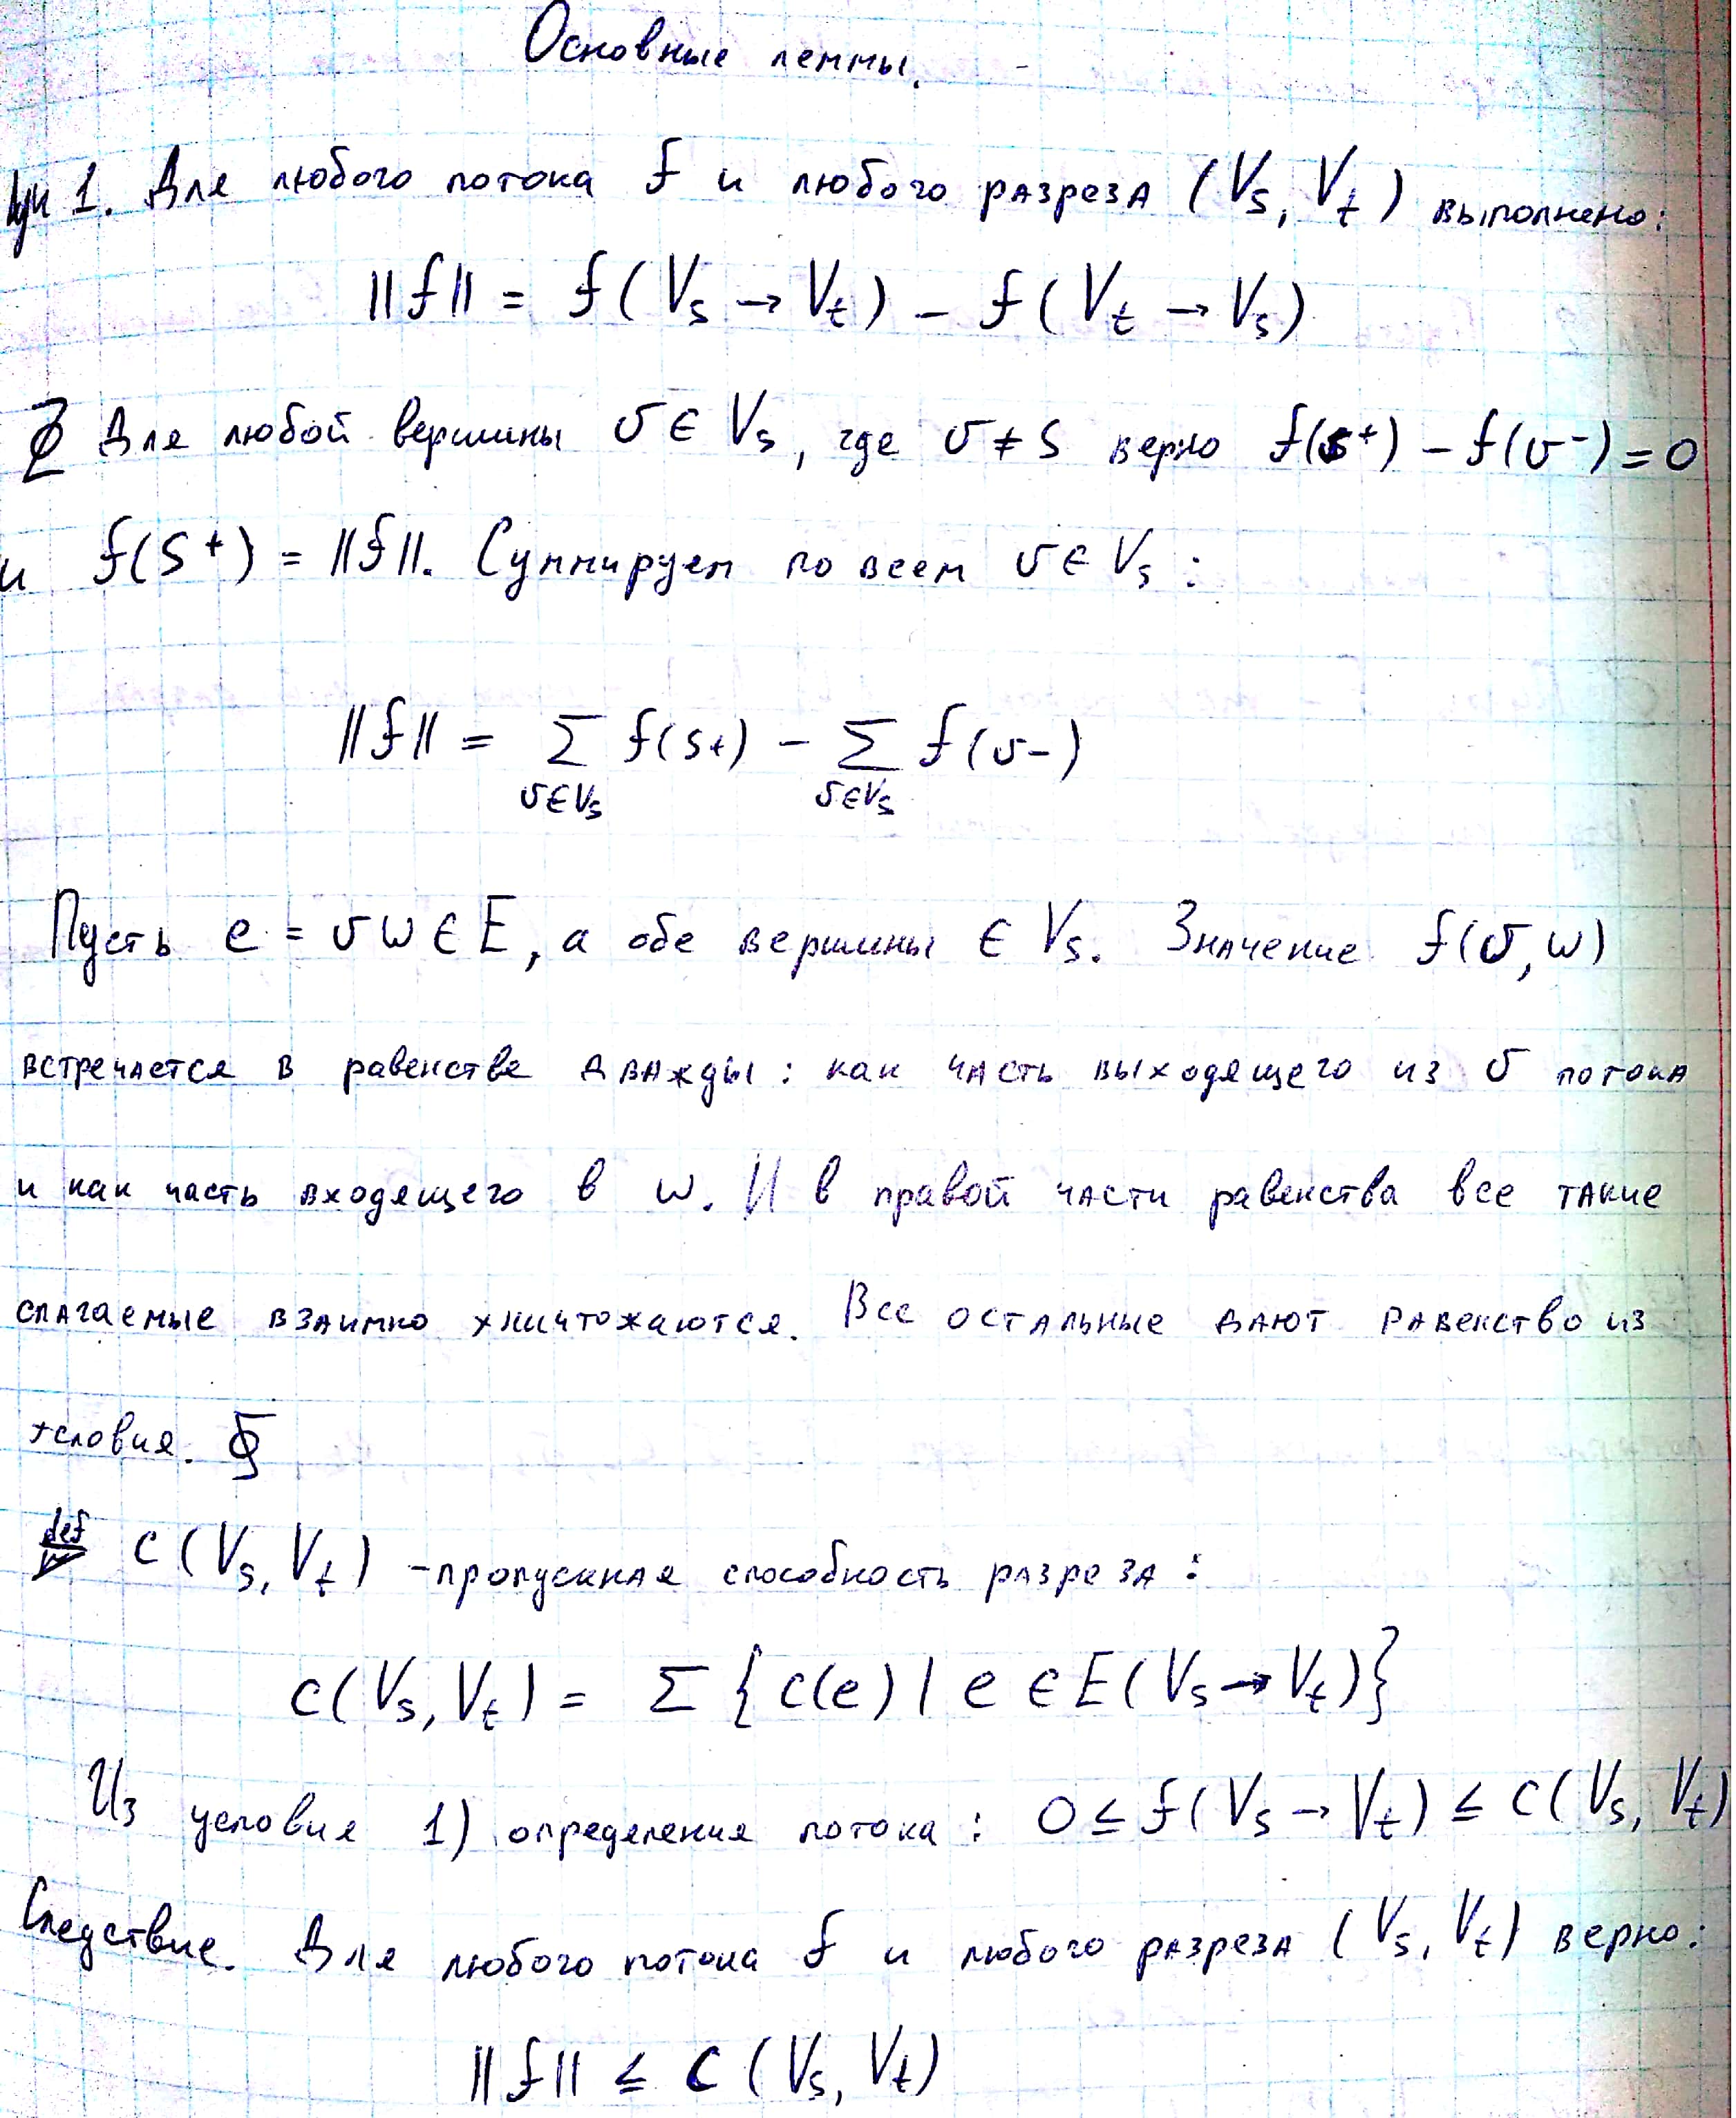 Основные леммы.
1. Для любого потока f и любого разреза (Vs, Vt) выполнено:
||f|| = f(Vs → Vt) − f(Vt → Vs)
Для любой вершины v ∈ Vs, где v ≠ s верно f(s+) − f(v−) = 0
и f(s+) = ||f||. Суммируем по всем v ∈ Vs :
||f|| = Σ f(s+) − Σ f(v−)
v∈Vs v∈Vs
Пусть e = vw ∈ E, а обе вершины ∈ Vs. Значение f(v,w)
встречается в равенстве дважды: как часть выходящего из v потока
и как часть входящего в w. И в правой части равенства все такие
слагаемые взаимно уничтожаются. Все остальные дают равенство из
условия.
def c(Vs, Vt) - пропускная способность разреза :
c(Vs, Vt) = Σ { c(e) | e ∈ E(Vs → Vt)}
Из условия 1) определения потока : 0 ≤ f(Vs → Vt) ≤ c(Vs, Vt)
Следствие. Для любого потока f и любого разреза (Vs, Vt) верно:
||f|| ≤ c (Vs, Vt)